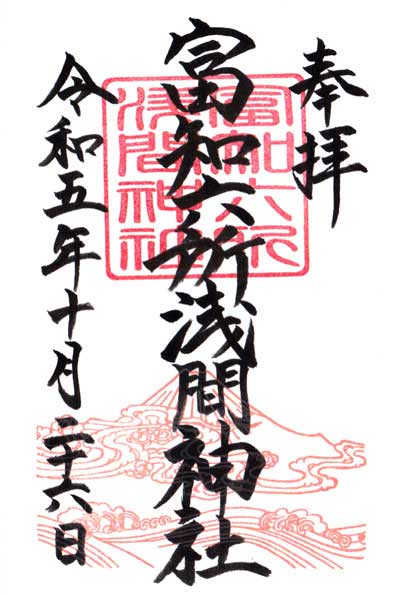 奉拝
富知六所浅間神社
令和五年十月二十六日
富知六所
浅間神社